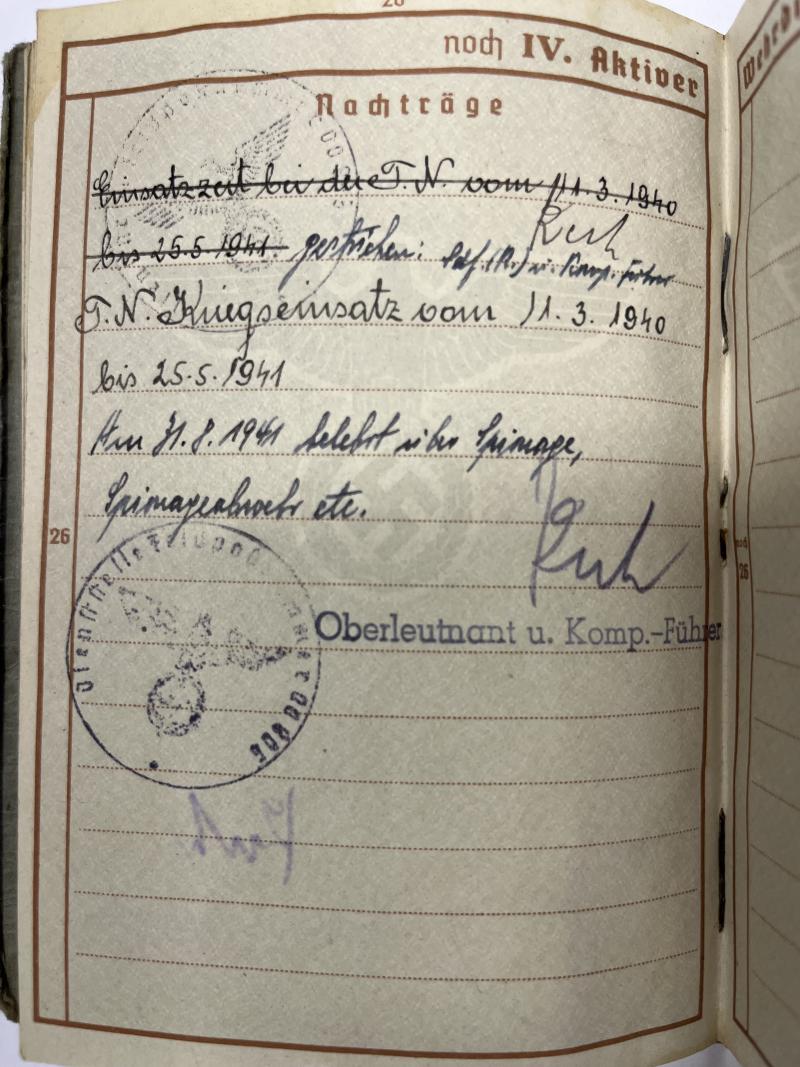 noch IV. Aktiver
Nachträge
Einsatzzeit bei der T.N. vom 11.3.1940
bis 25.5.1941. gestrichen: u. Komp. führer
T.N. Kriegseinsatz vom 11.3.1940
bis 25.5.1941
Am 31.8.1941 belehrt über Spionage,
Spionageabwehr etc.
26
Dienststelle Feldpostnummer
Oberleutnant u. Komp.-Führer
noch
26